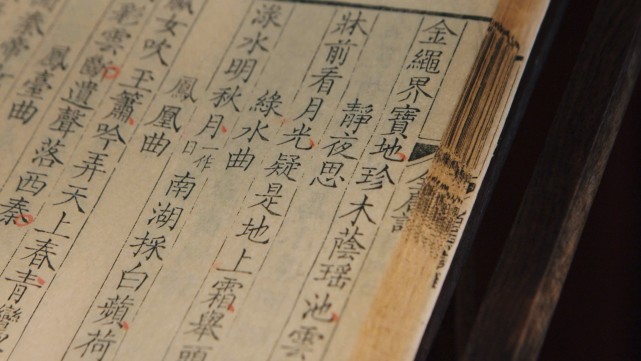 金繩界寶地珍木蔭瑤池雲
靜夜思
牀前看月光疑是地上霜舉頭
綠水曲
淥水明秋月一作南湖採白蘋荷
鳳凰曲
女吹玉簫吟弄天上春青鸞
彩雲斷遺聲落西秦
鳳臺曲
秦帝